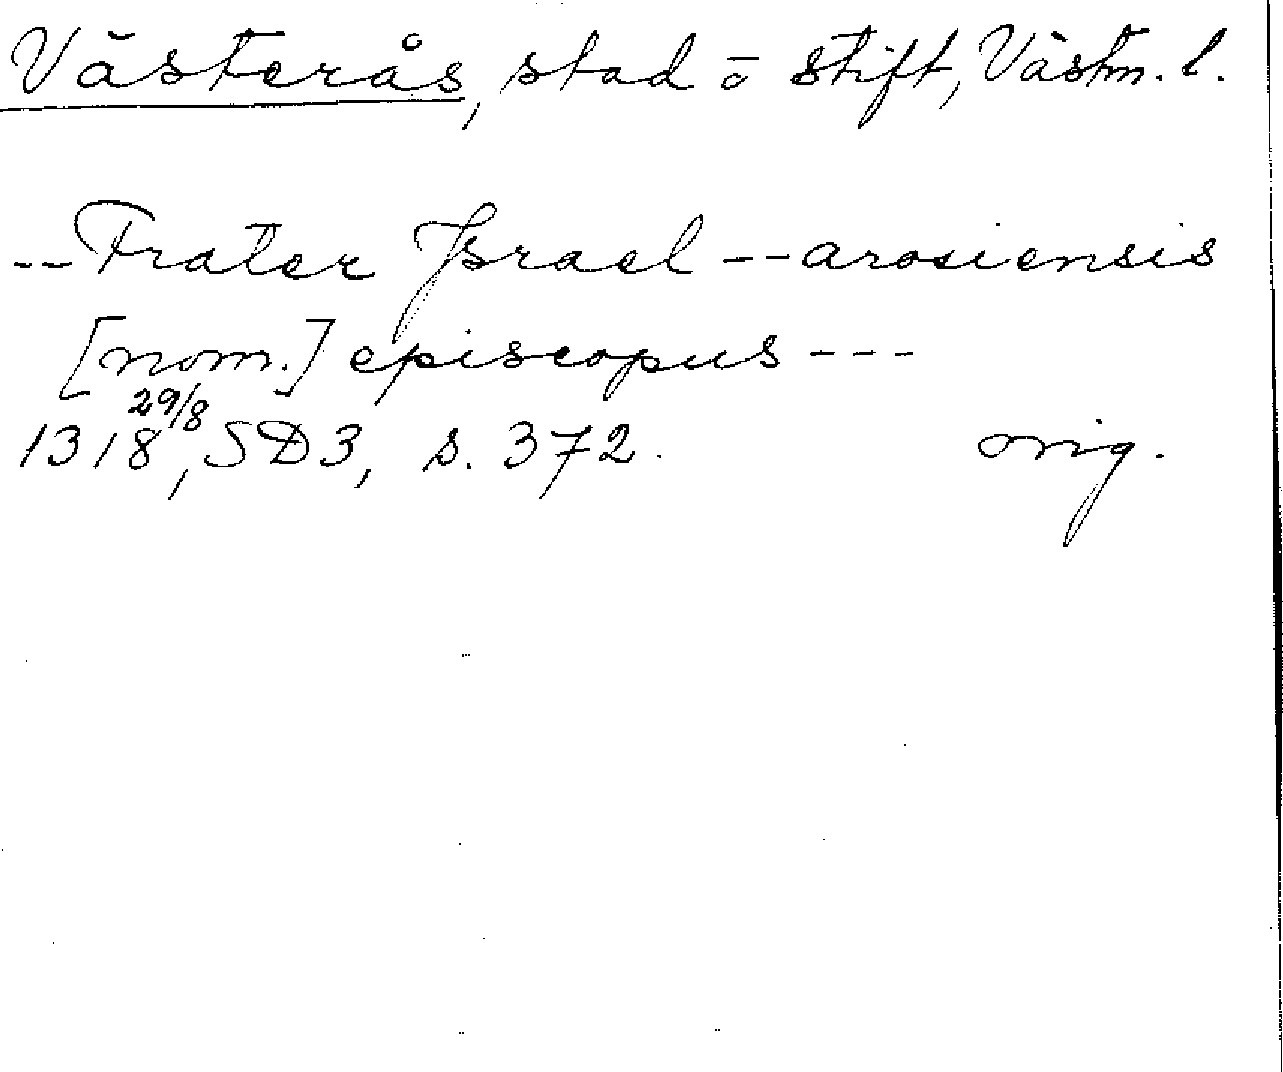 Västerås, stad o stift, Västm. l.
-- Frater Israel -- arosiensis
[nom.] episcopus ---
29/8
1318, SD3, s. 372. orig.